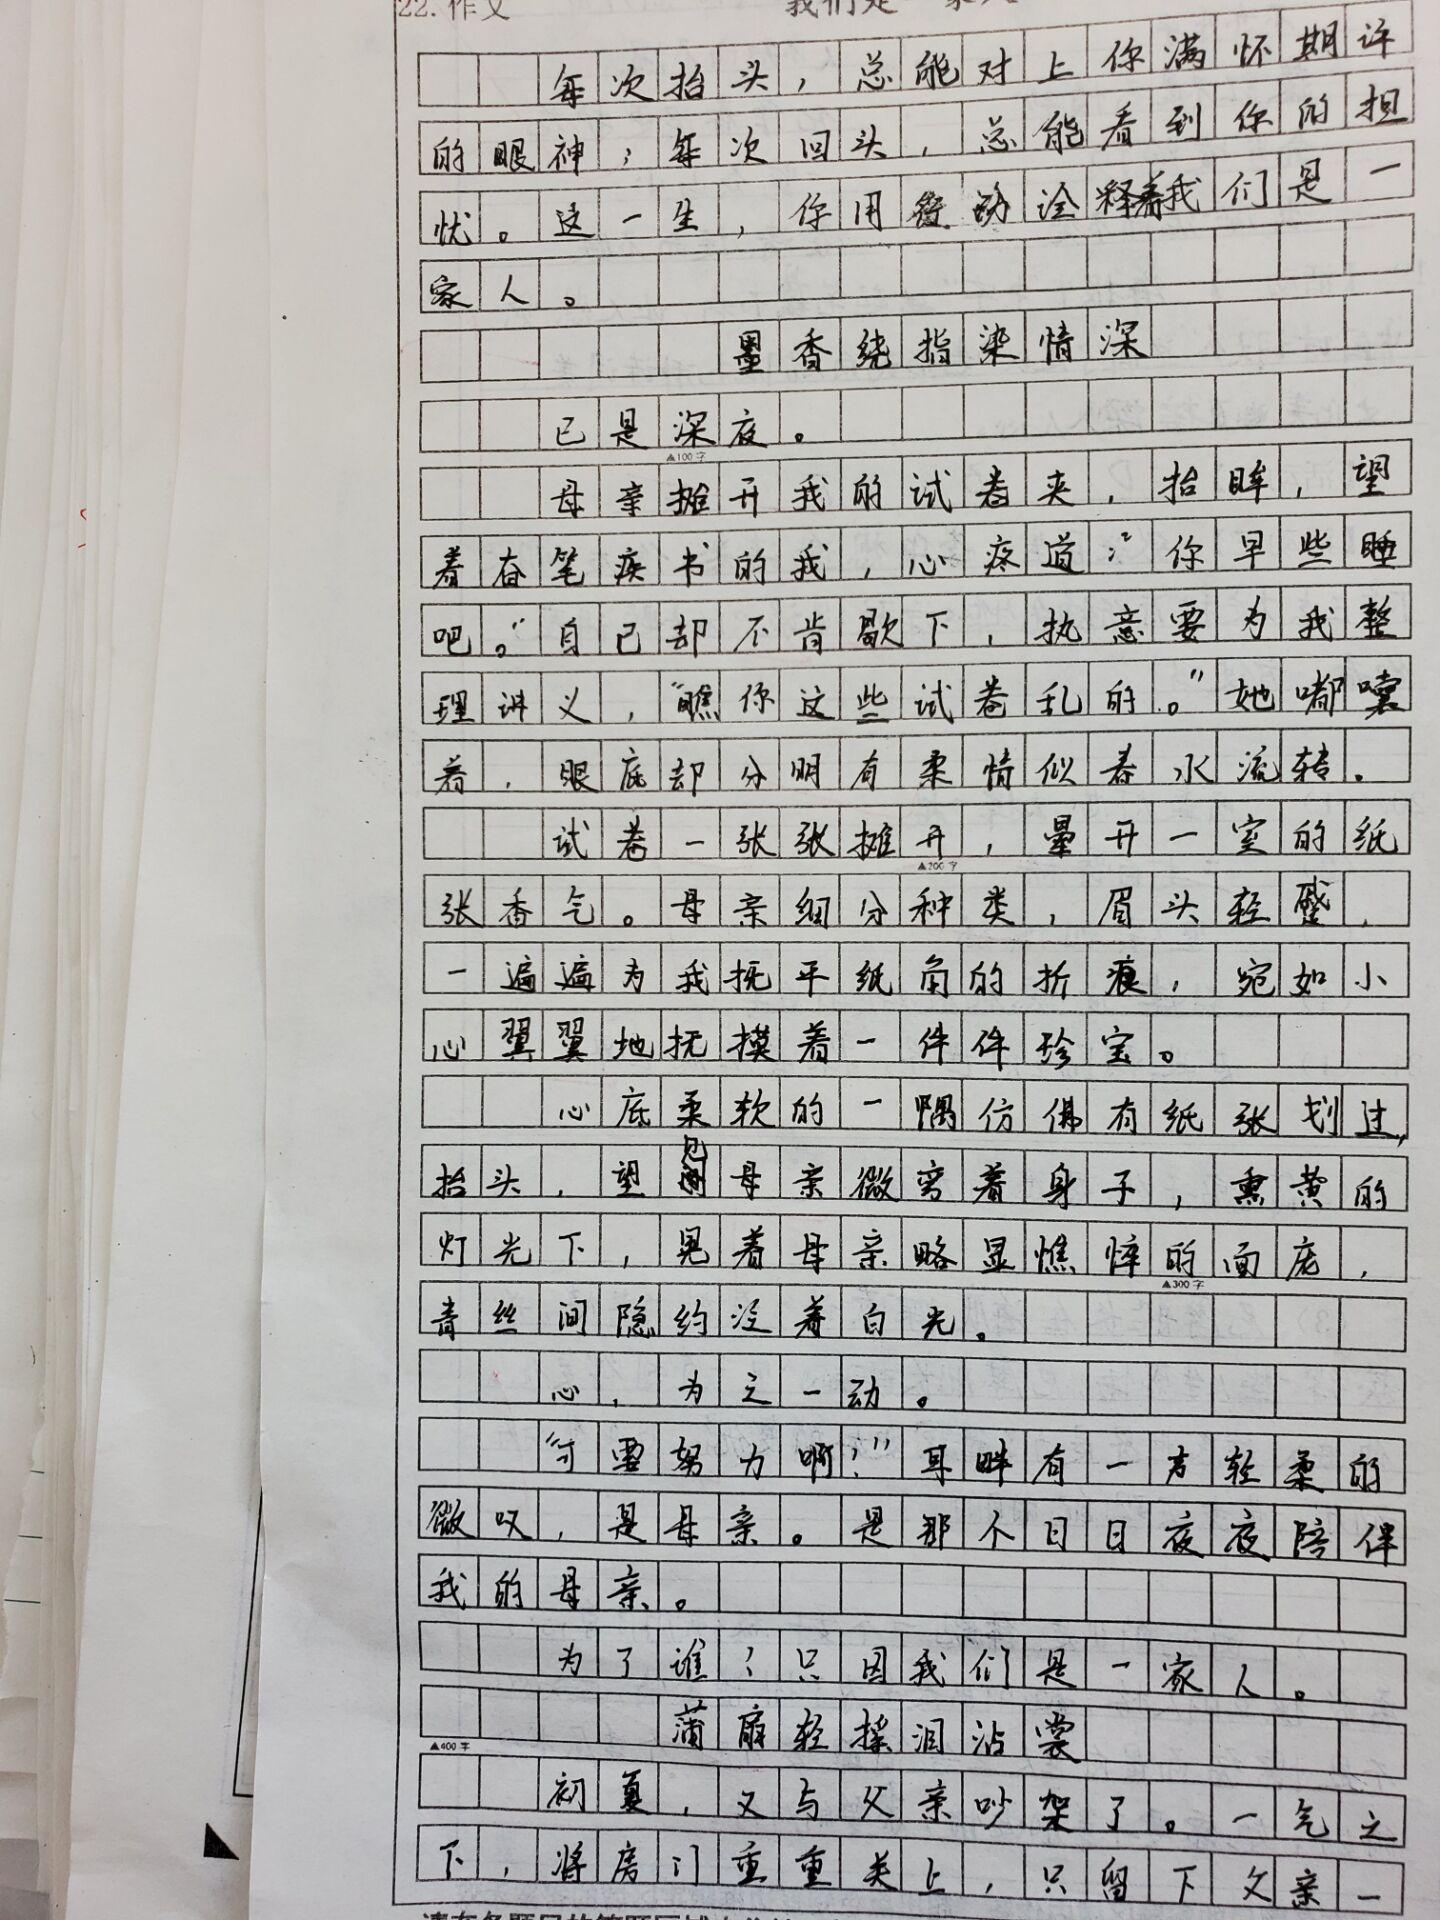 22.作文 我们是一家人
每次抬头，总能对上你满怀期许
的眼神；每次回头，总能看到你的担
忧。这一生，你用行动诠释着我们是一
家人。
墨香绕指染情深
已是深夜。
▲100字
母亲摊开我的试卷夹，抬眸，望
着奋笔疾书的我，心疼道：“你早些睡
吧。”自己却不肯歇下，执意要为我整
理讲义，“瞧你这些试卷乱的。”她嘟囔
着，眼底却分明有柔情似春水流转。
试卷一张张摊开，晕开一室的纸
▲200字
张香气。母亲细分种类，眉头轻蹙，
一遍遍为我抚平纸角的折痕，宛如小
心翼翼地抚摸着一件件珍宝。
心底柔软的一隅仿佛有纸张划过，
抬头，望见母亲微弯着身子，熏黄的
灯光下，晃着母亲略显憔悴的面庞，
▲300字
青丝间隐约泛着白光。
心，为之一动。
“可要努力啊！”耳畔有一声轻柔的
微叹，是母亲。是那个日日夜夜陪伴
我的母亲。
为了谁？只因我们是一家人。
蒲扇轻摇泪沾裳
▲400字
初夏，又与父亲吵架了。一气之
下，将房门重重关上，只留下父亲一